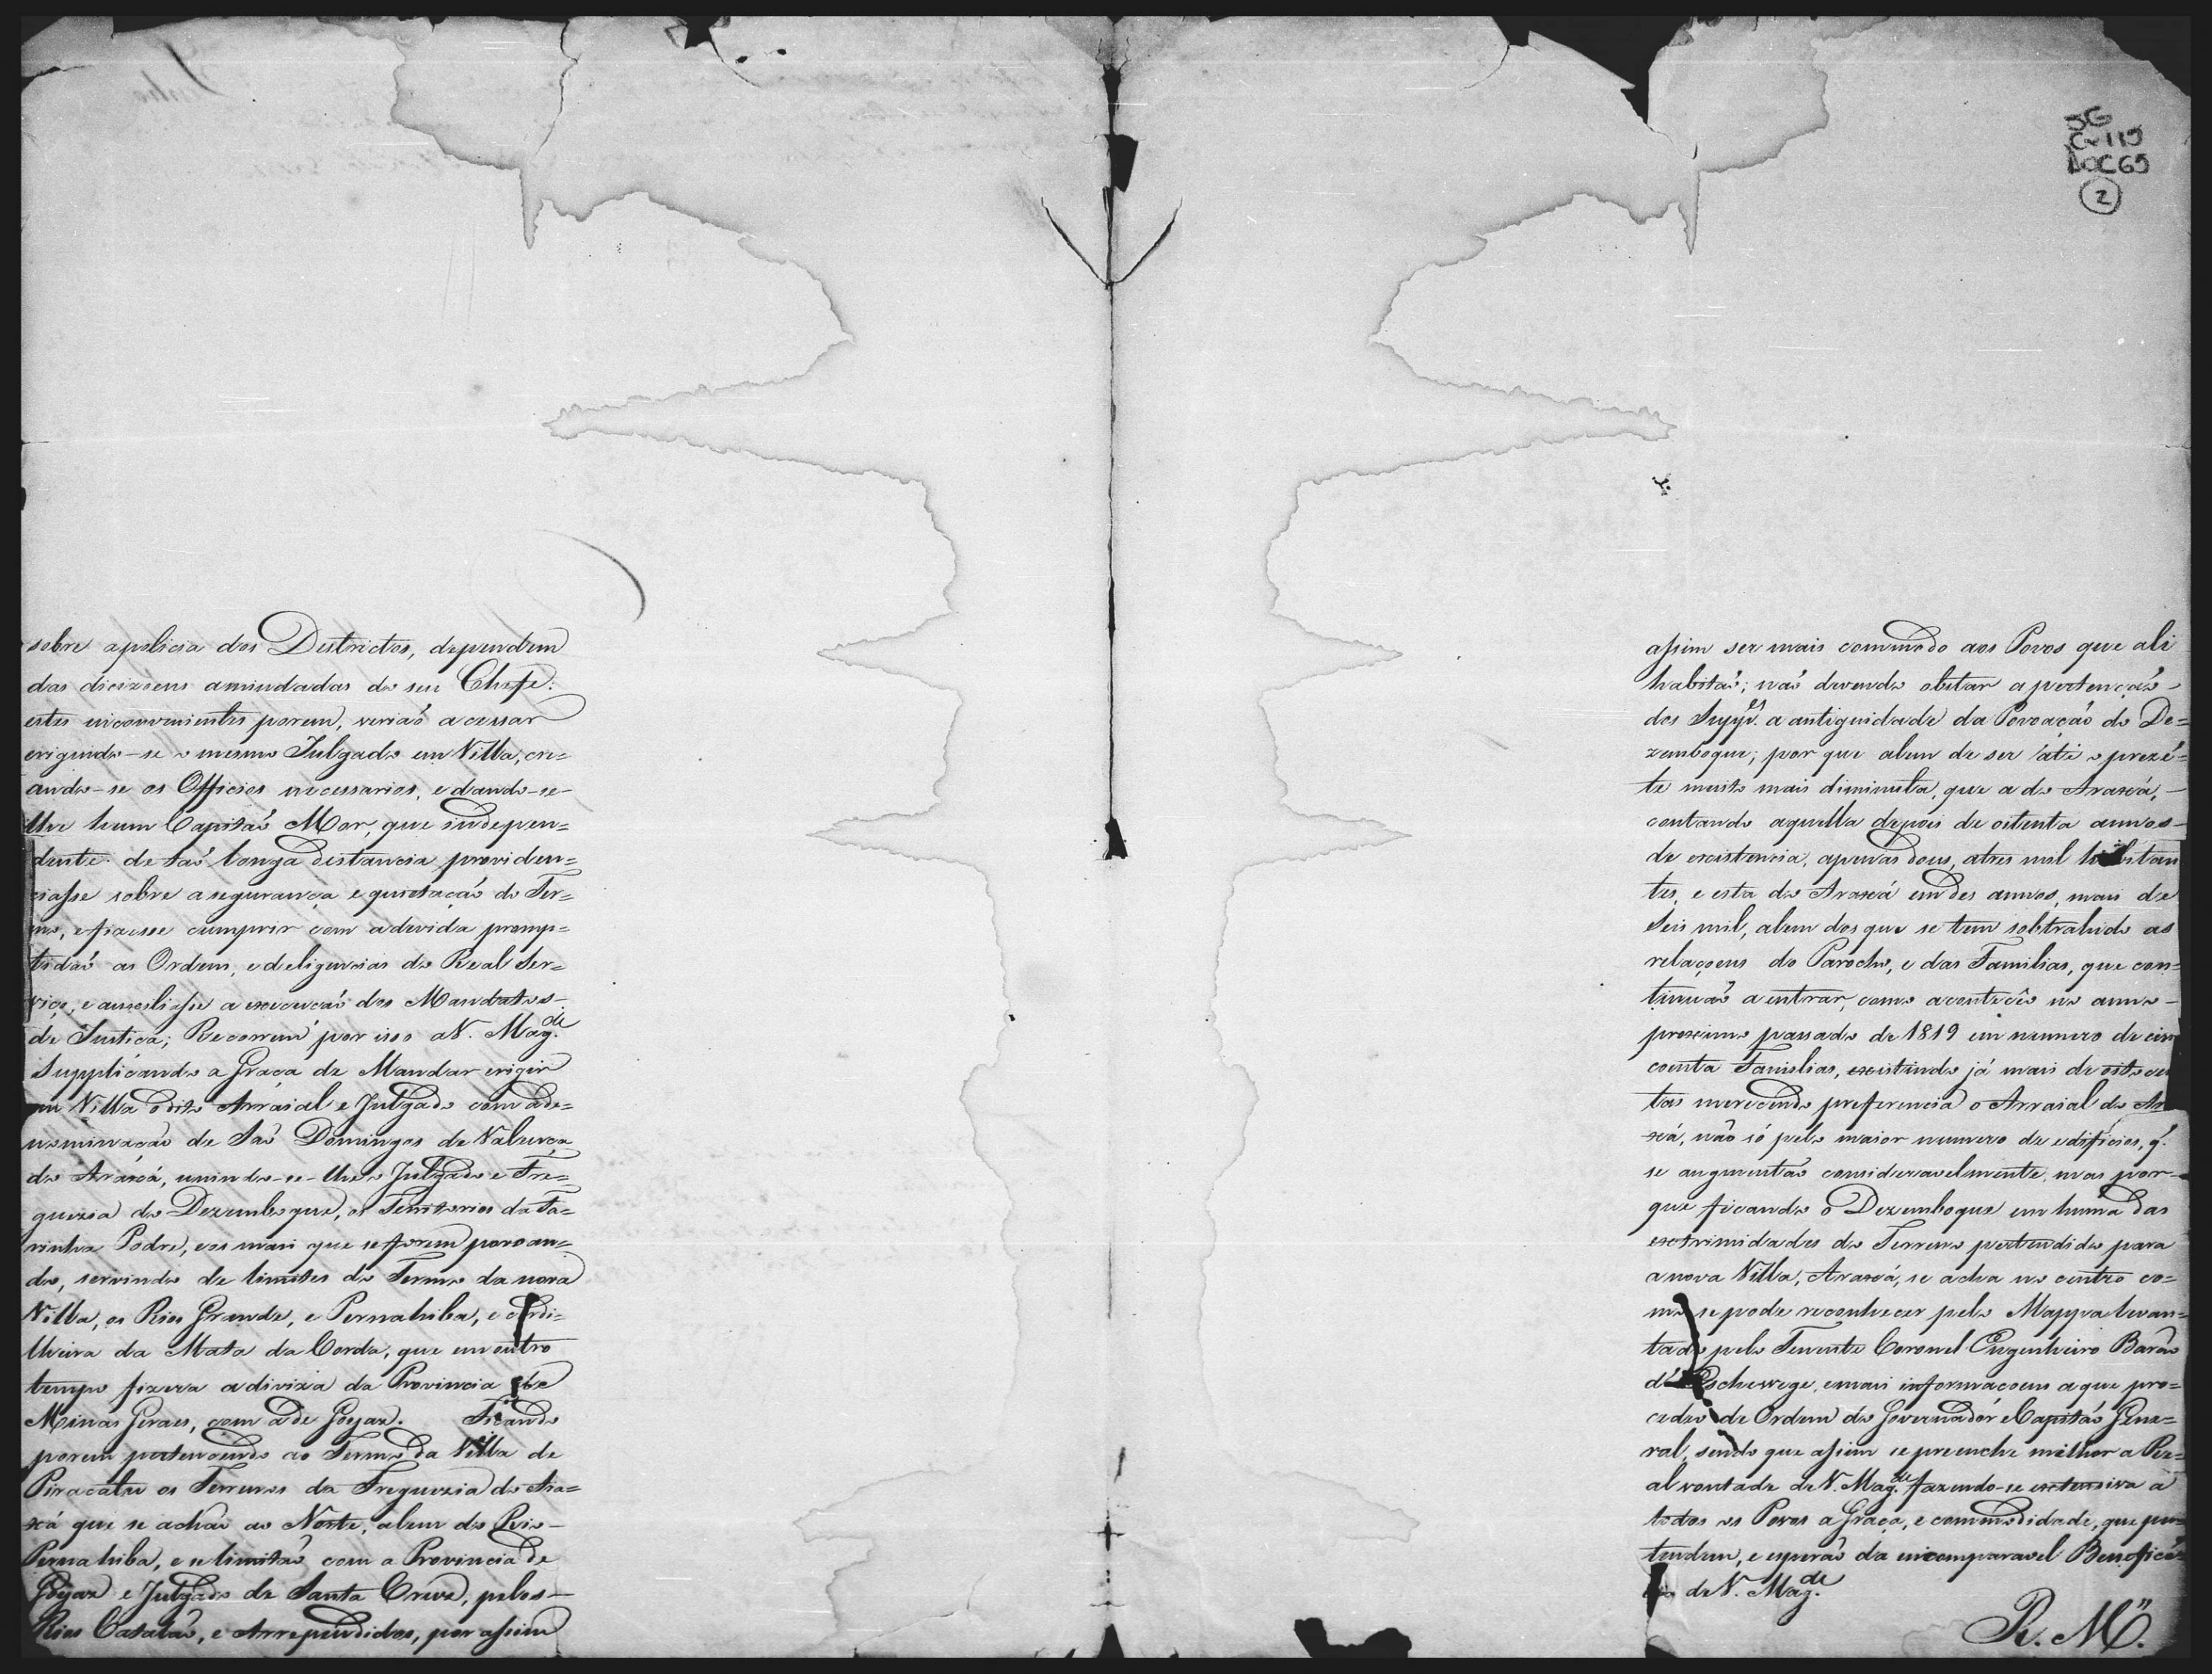 sobre apolicia dos Districtos, dependem
das dicizoens amiudadas do seu Chefe:
estes inconvenientes porem, viriaó acessar
erigindo-se o mesmo Julgado em Villa, cre=
ando-se os Officios necessarios, e dando-se-
lhe hum Capitaó Mor, que indepen=
dente de taó longa distancia providen=
ciasse sobre a segurança e quietaçaó do Ter=
mo, efizesse cumprir com adevida promp=
tidaó as Ordens, e deligencias do Real Ser=
viço, e auxiliasse a execuçaó dos Mandatos-
de Justiça; Recorrem por isso aV. Mag.de
Supplicando a Graça de Mandar erigir
em Villa odito Arraial e Julgado com ade=
nominaçaó de Saó Domingos de Valença
do Araxá, unindo-se-lhe o Julgado e Fre=
guezia do Dezemboque, os Territorios da Fa=
rinha Podre, eos mais que seforem povoan=
do, servindo de limites do Termo da nova
Villa, os Rios Grande, e Pernahiba, e Cordi=
lheira da Mata da Corda, que em outro
tempo fizera adiviza da Provincia de
Minas Geraes, com ade Goyaz. Ficando
porem pertencendo ao Termo da Villa de
Piracatu os Terrenos da Freguezia do Ara=
xá que se achaó ao Norte, alem do Rio-
Pernahiba, e se limitaó com a Provincia de
Goyaz e Julgado de Santa Cruz, pelos-
Rios Catalaó, e Arrependidos, por assim
SG
Cx 115
DOC 65
2
assim ser mais commodo aos Povos que ali
habitaó; naó devendo obstar a pertençaó
dos Supp.es a antiguidade da Povoaçaó do De=
zemboque; por que alem de ser 'até o prezẽ=
te muito mais diminuta, que a do Araxá,-
contando aquella depois de oitenta annos-
de existencia, apenas dous, atres mil habitan
tes, e esta do Araxá em des annos, mais de
Seis mil, alem dos que se tem sobtrahido as
relaçoens do Parocho, e das Familias, que con=
tinuaó a entrar, como aconteceo no anno-
proximo passado de 1819 em numero de cin
coenta Familias, existindo já mais de oitocen
tas merecendo preferencia o Arraial do Ar
xá, não só pelo maior numero de edificios, q.
se augmentaó consideravelmente, mas por-
que ficando o Dezemboque em huma das
extrimidades do Terreno pertendido para
a nova Villa, Araxá, se acha no centro co=
mo se pode reconhecer pelo Mappa levan=
tado pelo Tenente Coronel Engenheiro Barão
d'Eschewege, emais informacoens aque pro=
cedeo de Ordem do Governador e Capitaó Gene=
ral, sendo que assim se preenche milhor a Re=
al vontade de V. Mag.de fazendo-se extensiva a
todos os Povos aGraça, e commodidade, que per
tendem, e esperaó da incomparavel Beneficen
de V. Mag.de
R. M.